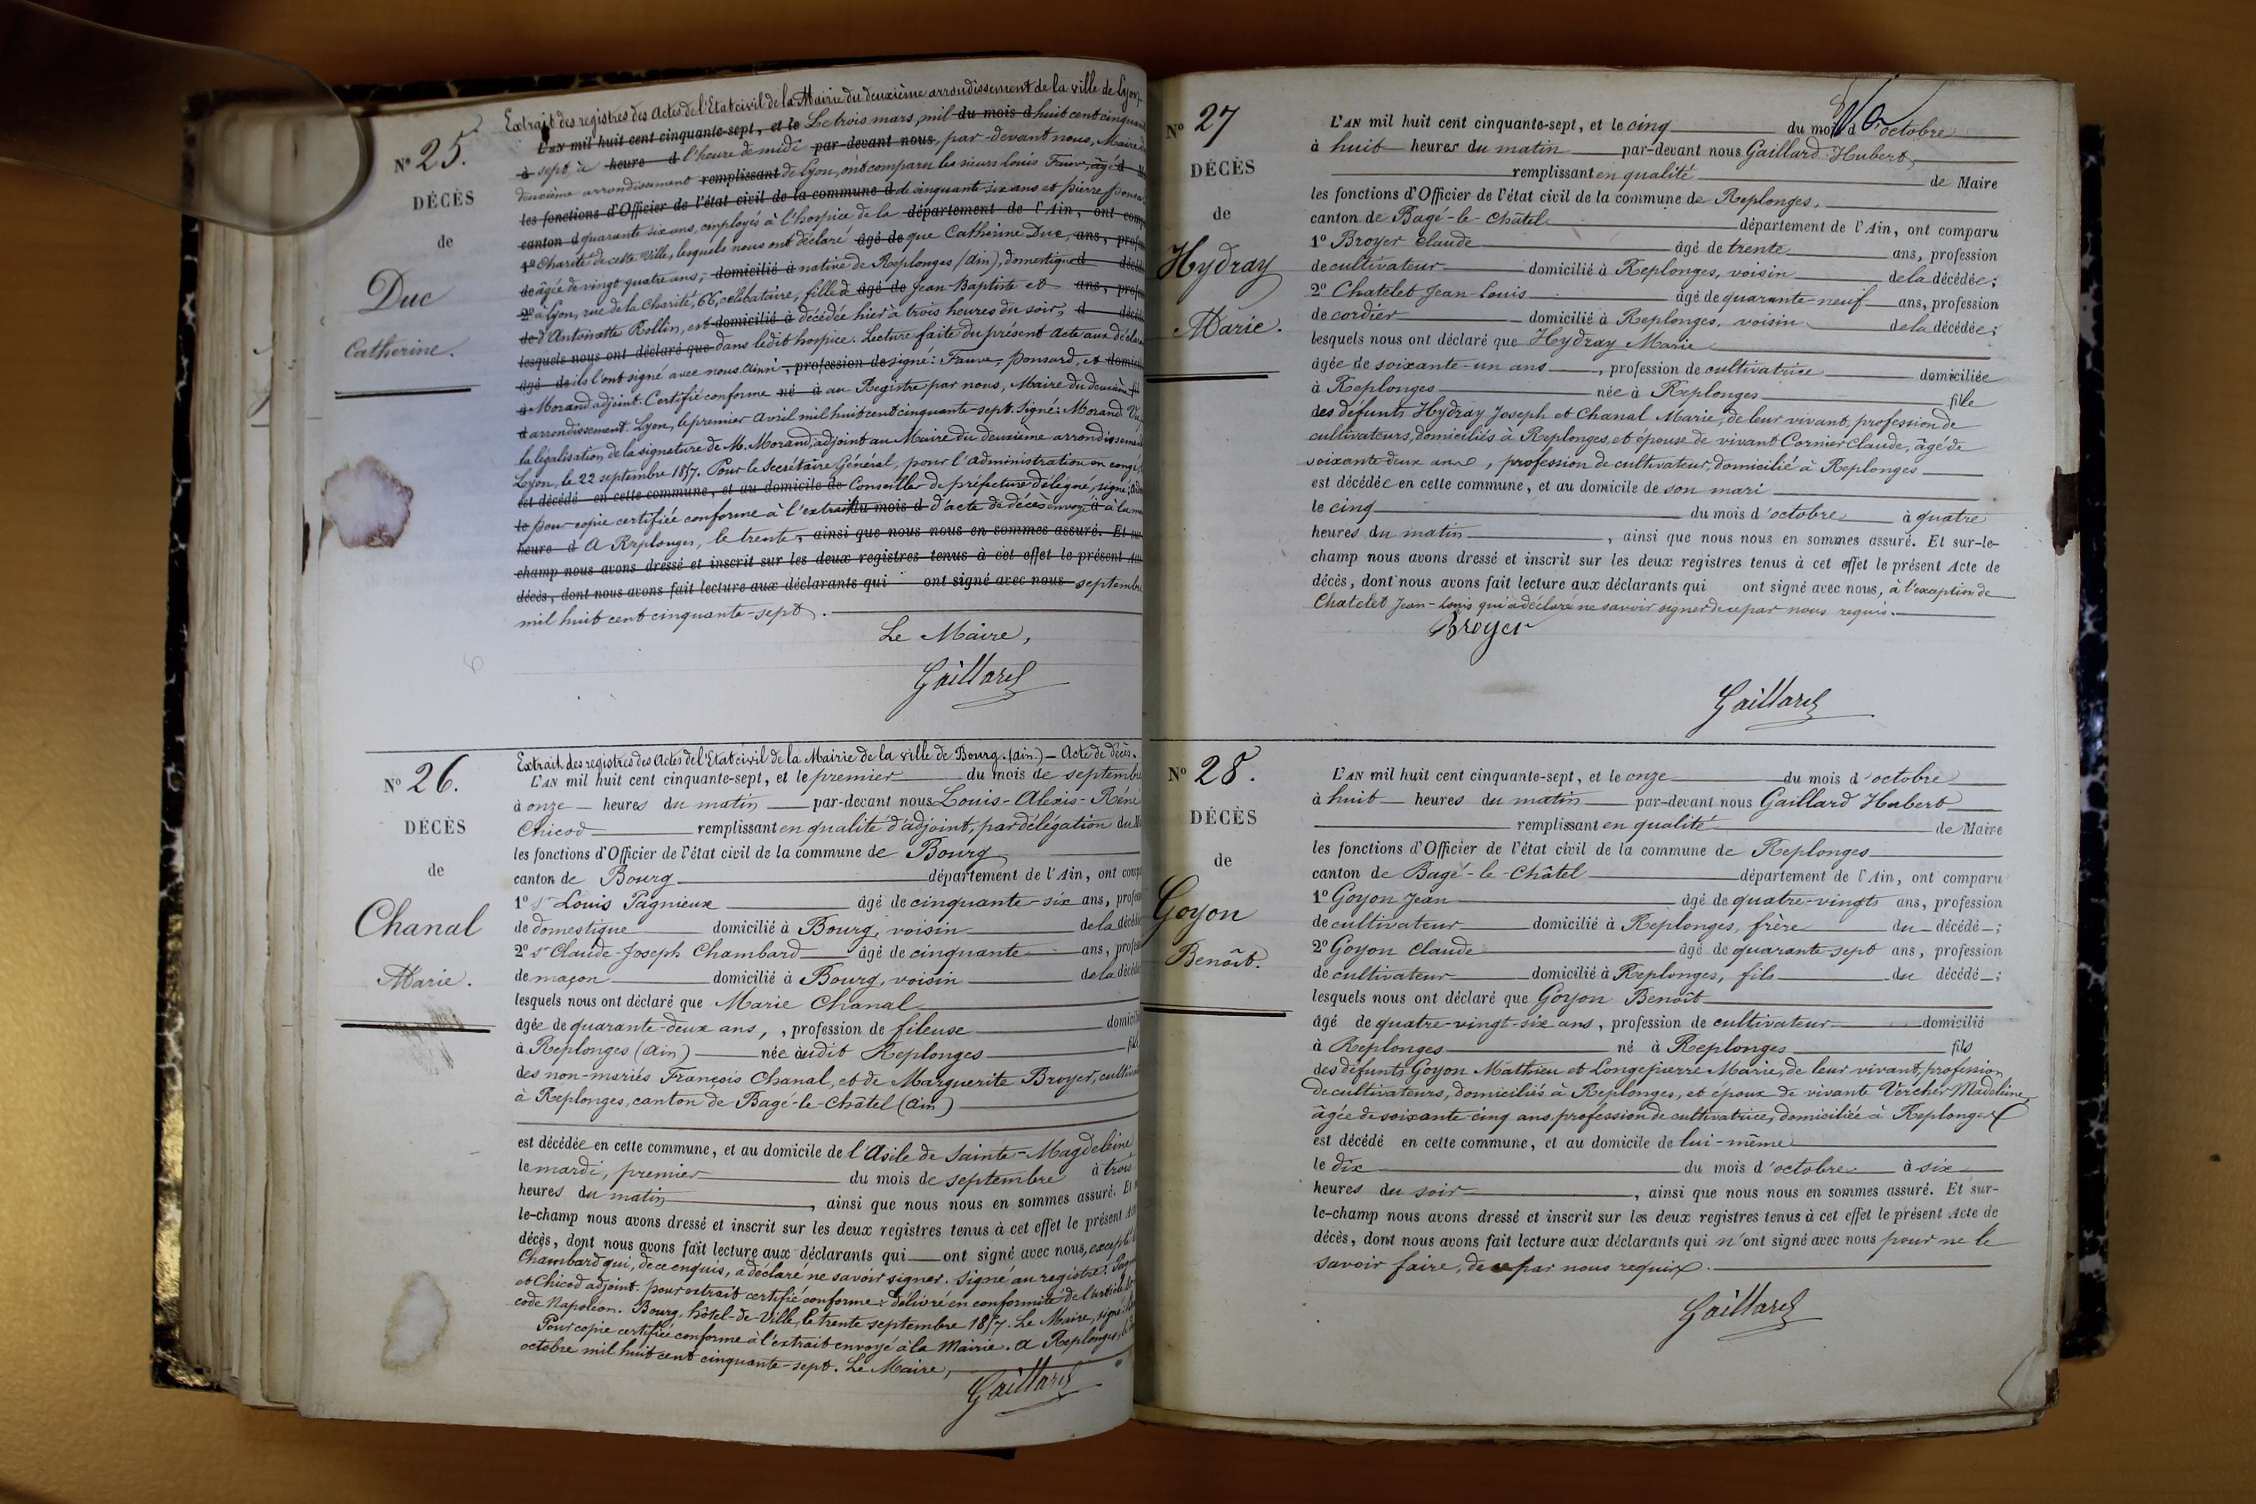 Extrait des registres des Actes de l'Etat civil de la Mairie du deuxième arrondissement de la ville de Lyon.
N° 25.
DÉCÈS
de
Duc
Catherine.
L'AN mil huit cent cinquante-sept, et le Le trois mars, mil du mois d huit cent cinquante
à sept, à heure d l'heure de midi par-devant nous, par-devant nous, Maire du
deuxième arrondissement remplissant de Lyon, ont comparu les sieurs Louis Fauve, âgé d
les fonctions d'Officier de l'état civil de la commune d de cinquante six ans et pierre ponsard
canton d quarante six ans, employés à l'hospice de la département de l'Ain, ont comp
1° Charité de cette Ville, lesquels nous ont déclaré âgé de que Catherine Duc, ans, profes
de âgée de vingt quatre ans, domicilié à native de Replonges (Ain), domestique d décéd
2° à Lyon, rue de la Charité, 66, célibataire, fille d âgé de Jean Baptiste et ans, profes
de d'Antoinette Rollin, est domicilié à décédée hier à trois heures du soir, d décéd
lesquels nous ont déclaré que dans ledit hospice. Lecture faite du présent Acte aux déclara
âgé de ils l'ont signé avec nous ainsi , profession de signé: Fauve, ponsard, et domicil
à Morand adjoint. Certifié conforme né à au Registre par nous, Maire du deuxième fil
d arrondissement. Lyon, le premier avril mil huit cent cinquante-sept. Signé: Morand
la légalisation de la signature de M. Morand, adjoint au Maire du deuxième arrondissement
Lyon, le 22 septembre 1857. Pour le Secrétaire Général, pour l'administration en congé,
est décédé en cette commune, et au domicile de Conseiller de préfecture délégué, signé:
le pour copie certifiée conforme à l'extrait du mois d d'acte de décès envoyé à à la
heure d A Replonges, le trente, ainsi que nous nous en sommes assuré. Et sur
champ nous avons dressé et inscrit sur les deux registres tenus à cet effet le présent Acte
décès, dont nous avons fait lecture aux déclarants qui ont signé avec nous septembre
mil huit cent cinquante-sept.
Le Maire,
Gaillard
Extrait des registres des Actes de l'Etat civil de la Mairie de la ville de Bourg. (Ain.) — Acte de décès.
N° 26.
DÉCÈS
de
Chanal
Marie.
L'AN mil huit cent cinquante-sept, et le premier du mois de septembre
à onze heures du matin par-devant nous Louis-Alexis-Réné
Chicod remplissant en qualité d'adjoint, par délégation du M
les fonctions d'Officier de l'état civil de la commune de Bourg
canton de Bourg département de l'Ain, ont comp
1° sr Louis Pagnieux âgé de cinquante-six ans, profes
de domestique domicilié à Bourg, voisin de la décédé
2° sr Claude-Joseph Chambard âgé de cinquante ans, profes
de maçon domicilié à Bourg, voisin de la décédé
lesquels nous ont déclaré que Marie Chanal
âgée de quarante-deux ans, , profession de fileuse domicili
à Replonges (Ain) née audit Replonges fil
des non-mariés François Chanal, et de Marguerite Broyer, cultiva
à Replonges, canton de Bagé-le-Châtel (Ain)
est décédée en cette commune, et au domicile de l'Asile de Sainte-Magdeleine
le mardi, premier du mois de septembre à trois
heures du matin, ainsi que nous nous en sommes assuré. Et
le-champ nous avons dressé et inscrit sur les deux registres tenus à cet effet le présent Acte
décès, dont nous avons fait lecture aux déclarants qui ont signé avec nous, excepté
Chambard qui, de ce enquis, a déclaré ne savoir signer. Signé au registre: Pagn
et Chicod adjoint. pour extrait certifié conforme: délivré en conformité de l'article
code Napoléon. Bourg, hôtel-de-Ville, le trente septembre 1857. Le Maire, signé:
Pour copie certifiée conforme à l'extrait envoyé à la Mairie. A Replonges,
octobre mil huit cent cinquante-sept. Le Maire,
Gaillard
N° 27
DÉCÈS
de
Hydray
Marie.
L'AN mil huit cent cinquante-sept, et le cinq du mois d'octobre
à huit heures du matin par-devant nous Gaillard Hubert,
remplissant en qualité de Maire
les fonctions d'Officier de l'état civil de la commune de Replonges,
canton de Bagé-le-Châtel département de l'Ain, ont comparu
1° Broyer Claude âgé de trente ans, profession
de cultivateur domicilié à Replonges, voisin de la décédée;
2° Chatelet Jean-Louis âgé de quarante-neuf ans, profession
de cordier domicilié à Replonges, voisin de la décédée;
lesquels nous ont déclaré que Hydray Marie
âgée de soixante-un ans, profession de cultivatrice domiciliée
à Replonges née à Replonges fille
des défunts Hydray Joseph et Chanal Marie, de leur vivant, profession de
cultivateurs, domiciliés à Replonges, et épouse de vivant Cornier Claude, âgé de
soixante deux ans, profession de cultivateur, domicilié à Replonges
est décédée en cette commune, et au domicile de son mari
le cinq du mois d'octobre à quatre
heures du matin, ainsi que nous nous en sommes assuré. Et sur-le-
champ nous avons dressé et inscrit sur les deux registres tenus à cet effet le présent Acte de
décès, dont nous avons fait lecture aux déclarants qui ont signé avec nous, à l'exception de
Chatelet Jean-Louis qui a déclaré ne savoir signer de ce par nous requis.
Broyer
Gaillard
N° 28.
DÉCÈS
de
Goyon
Benoît.
L'AN mil huit cent cinquante-sept, et le onze du mois d'octobre
à huit heures du matin par-devant nous Gaillard Hubert
remplissant en qualité de Maire
les fonctions d'Officier de l'état civil de la commune de Replonges
canton de Bagé-le-Châtel département de l'Ain, ont comparu
1° Goyon Jean âgé de quatre-vingts ans, profession
de cultivateur domicilié à Replonges, frère du décédé;
2° Goyon Claude âgé de quarante sept ans, profession
de cultivateur domicilié à Replonges, fils du décédé;
lesquels nous ont déclaré que Goyon Benoît
âgé de quatre-vingt-six ans, profession de cultivateur domicilié
à Replonges né à Replonges fils
des défunts Goyon Mathieu et Longepierre Marie, de leur vivant, profession
de cultivateurs, domiciliés à Replonges, et époux de vivante Vercher Madeleine
âgée de soixante cinq ans, profession de cultivatrice, domiciliée à Replonges
est décédé en cette commune, et au domicile de lui-même
le dix du mois d'octobre à six
heures du soir, ainsi que nous nous en sommes assuré. Et sur-
le-champ nous avons dressé et inscrit sur les deux registres tenus à cet effet le présent Acte de
décès, dont nous avons fait lecture aux déclarants qui n'ont signé avec nous pour ne le
savoir faire, de ce par nous requis.
Gaillard